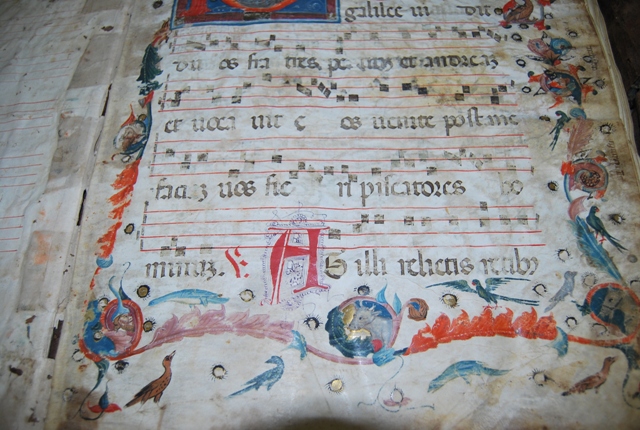 galilee vidit
duos fratres petrum et andreaz
et vocavit eos venite post me
faciaz vos fieri piscatores ho
minuz. 
At illi relictis retib9